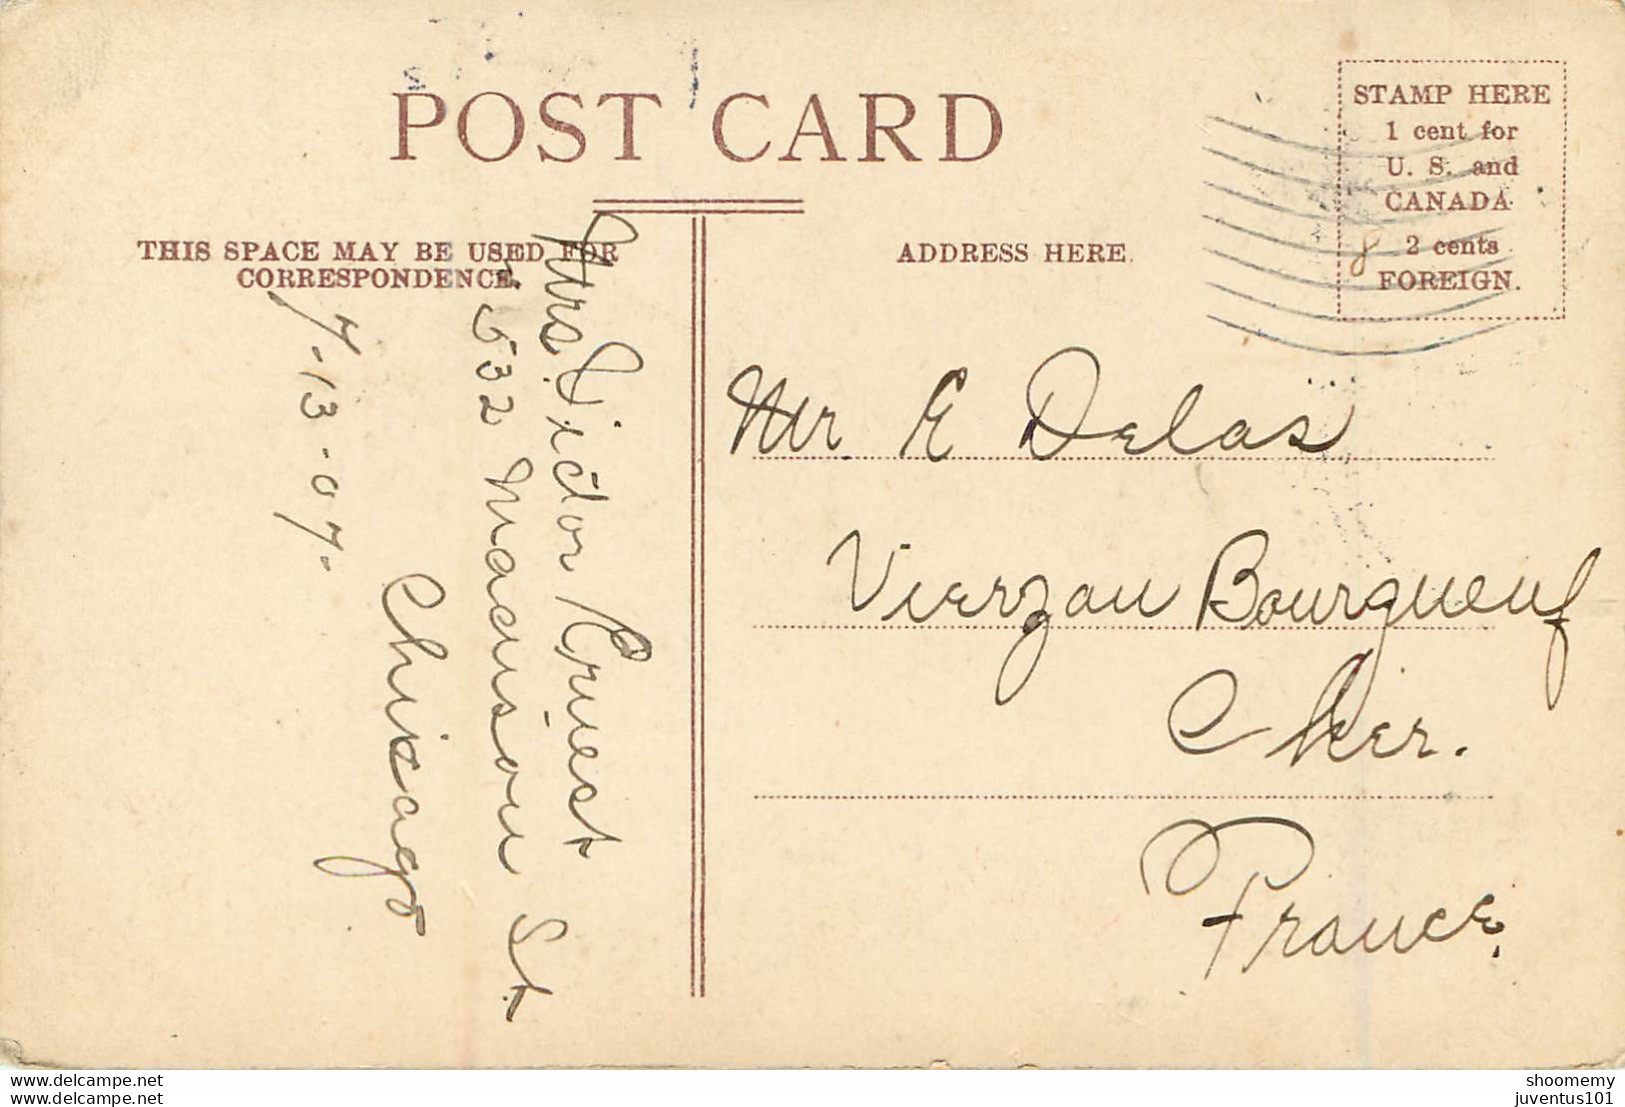 POST CARD
THIS SPACE MAY BE USED FOR
CORRESPONDENCE.
ADDRESS HERE.
STAMP HERE
1 cent for
U. S. and
CANADA
2 cents
FOREIGN.
8
Mr. E Delas
Vierzon Bourgneuf
Cher.
France.
Mrs. Victor Priest
1532 Madison St
Chicago
7-13-07-
delcampe.net
delcampe.net
shoomemy
juventus101